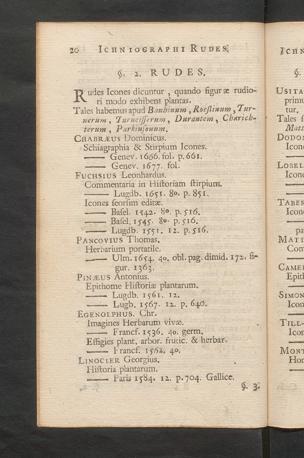 20 ICHNIOGRAPHI RUDES.
§. 2. RUDES.
Rudes Icones dicuntur, quando figuræ rudio-
ri modo exhibent plantas.
Tales habemus apud Bonbinum, Roeslinum, Tur-
nerum, Turneisserum, Durantem, Charich-
terum, Parkinsonum.
CHABRÆUS Dominicus.
Schiagraphia & Stirpium Icones.
—— Genev. 1666. fol. p. 661.
—— Genev. 1677. fol.
FUCHSIUS Leonhardus.
Commentaria in Historiam stirpium.
—— Lugdb. 1651. 8o. p. 851.
Icones seorsim editæ.
—— Basel. 1542. 8o. p. 516.
—— Basel. 1545. 8o. p. 516.
—— Lugdb. 1551. 12. p. 516.
PANCOVIUS Thomas.
Herbarium portatile.
—— Ulm. 1654. 4o. obl. pag. dimid. 172. fi-
gur. 1363.
PINÆUS Antonius.
Epithome Historiæ plantarum.
—— Lugdb. 1561. 12.
—— Lugb. 1567. 12. p. 640.
EGENOLPHUS. Chr.
Imagines Herbarum vivæ.
—— Francf. 1536. 4o. germ.
Effigies plant. arbor. frutic. & herbar.
—— Francf. 1562. 4o.
LINOCIER Georgius.
Historia plantarum.
—— Paris 1584. 12. p. 704. Gallice.
§. 3.